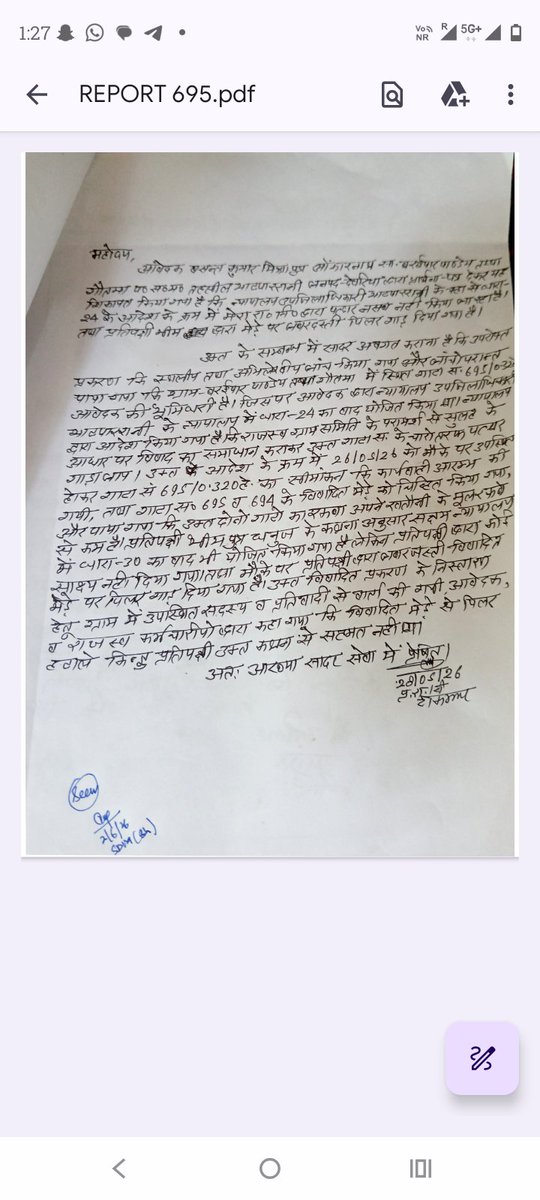 1:27
Vo NR R 5G+
REPORT 695.pdf
महोदय,
आवेदक बसन्त कुमार मिश्रा पुत्र ओंकारनाथ सा. बरईपार पाण्डेय तप्पा
गौतमा प० स०म० तहसील भाटपाररानी जनपद-देवरिया द्वारा प्रार्थना-पत्र देकर यह
शिकायत किया गया है कि न्यायालय उपजिलाधिकारी भाटपाररानी के वाद सं० धारा-
24 के आदेश के क्रम में मेरा गा० सं० द्वारा पत्थर नसब नहीं किया जा रहा है।
तथा प्रतिपक्षी भीम द्वारा मेड़ पर जबरदस्ती पिलर गाड़ दिया गया है।
उक्त के सम्बन्ध में सादर अवगत कराना है कि उपरोक्त
प्रकरण कि स्थलीय तथा अभिलेखीय जांच किया गया और जांचोपरान्त
पाया गया कि ग्राम बरईपार पाण्डेय तप्पा गौतमा में स्थित गाटा स० 695/0.320
आवेदक की भूमिधरी है। जिस पर आवेदक द्वारा न्यायालय उपजिलाधिकारी
भाटपाररानी के न्यायालय में धारा-24 का वाद योजित किया था। न्यायालय
द्वारा आदेश किया गया है कि राजस्व ग्राम समिति के परामर्श से सुलह के
आधार पर विवाद का समाधान कराकर उक्त गाटा स० के चारो तरफ पत्थर
गाड़ा जाय। उक्त आदेश के क्रम में 26/05/26 को मौके पर उपस्थित
होकर गाटा सं 695/0.320हे० का सीमांकन कि कार्यवाही आरम्भ की
गयी, तथा गाटा स० 695 व 694 के विवादित मेड़ को चिन्हित किया गया,
और पाया गया कि उक्त दोनो गाटो का रकबा अपने खतौनी के मूल रकबे
से कम है। प्रतिपक्षी भीम पुत्र के कथना अनुसार सक्षम न्यायालय
में धारा-30 का वाद भी योजित किया गया है लेकिन प्रतिपक्षी द्वारा कोई
साक्ष्य नही दिया गया तथा मौके पर प्रतिपक्षी द्वारा जबरजस्ती विवादित
मेड़ पर पिलर गाड़ दिया गया है। उक्त विवादित प्रकरण के निस्तारण
हेतु ग्राम में उपस्थित सदस्य व प्रतिवादी से वार्ता की गयी, आवेदक,
व राजस्व कर्मचारीयो द्वारा कहा गया कि विवादित मेड़ से पिलर
हटाले किन्तु प्रतिपक्षी उक्त कथन से सहमत नही था।
अतः आख्या सादर सेवा में प्रेषित।
28/05/26
Seen
2/6/26
SDM (Bh)